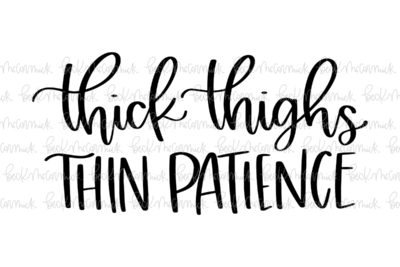 thick thighs
THIN PATIENCE